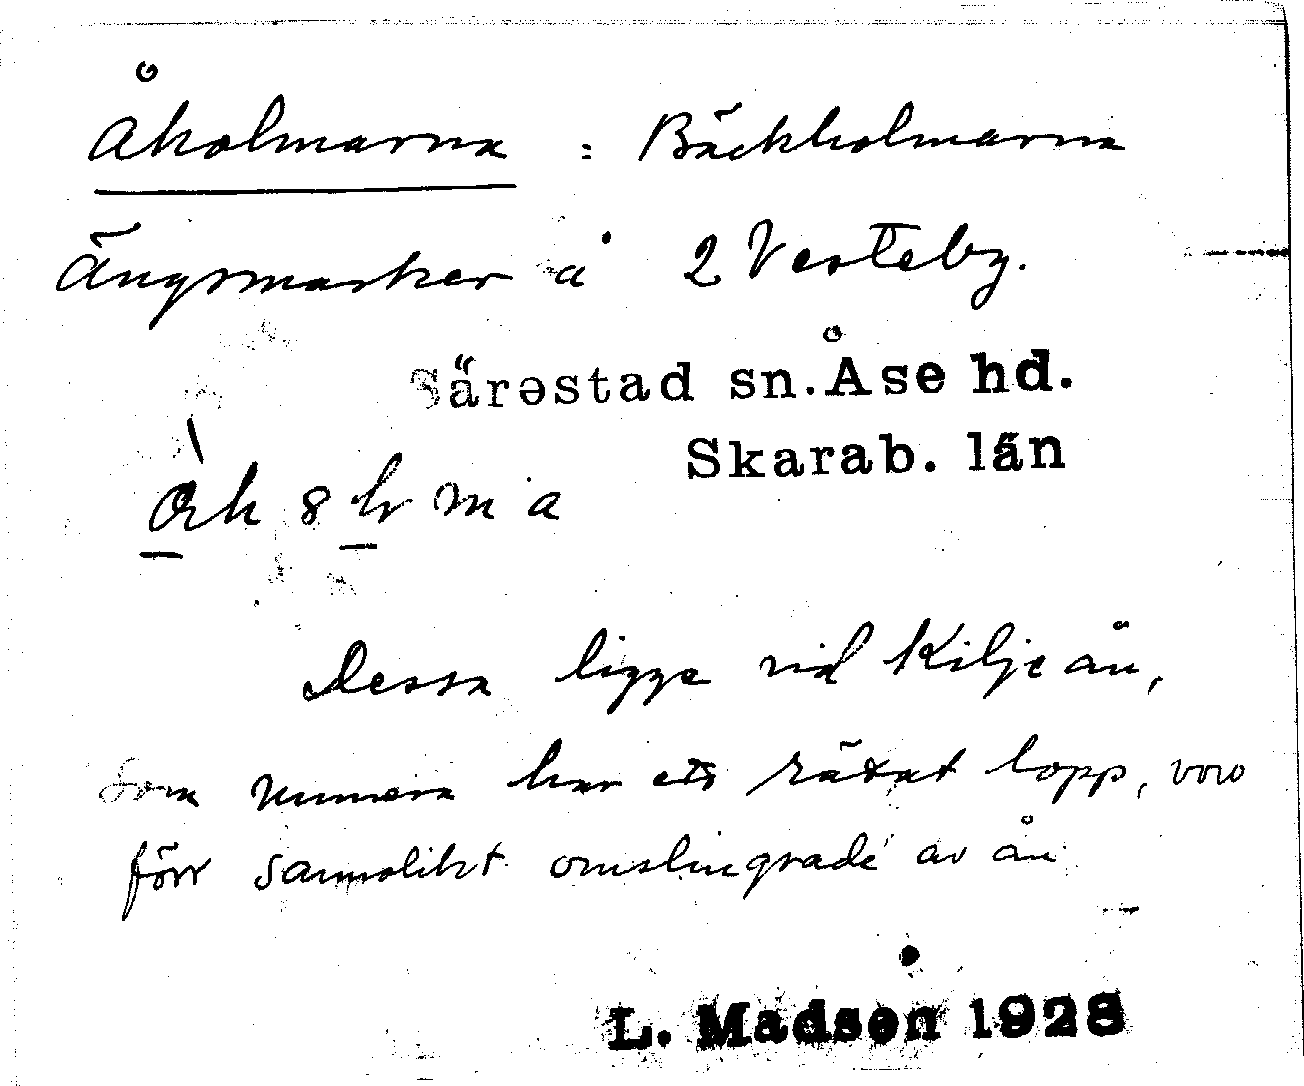 Åholmarna : Bäckholmarna
Ängsmarker å 2 Vesteby.
Särestad sn. Åse hd.
Skarab. län
Dessa ligga vid Kiljeån,
som numera har ett rätat lopp, voro
förr sannolikt omslingrade av ån
L. Madsen 1928